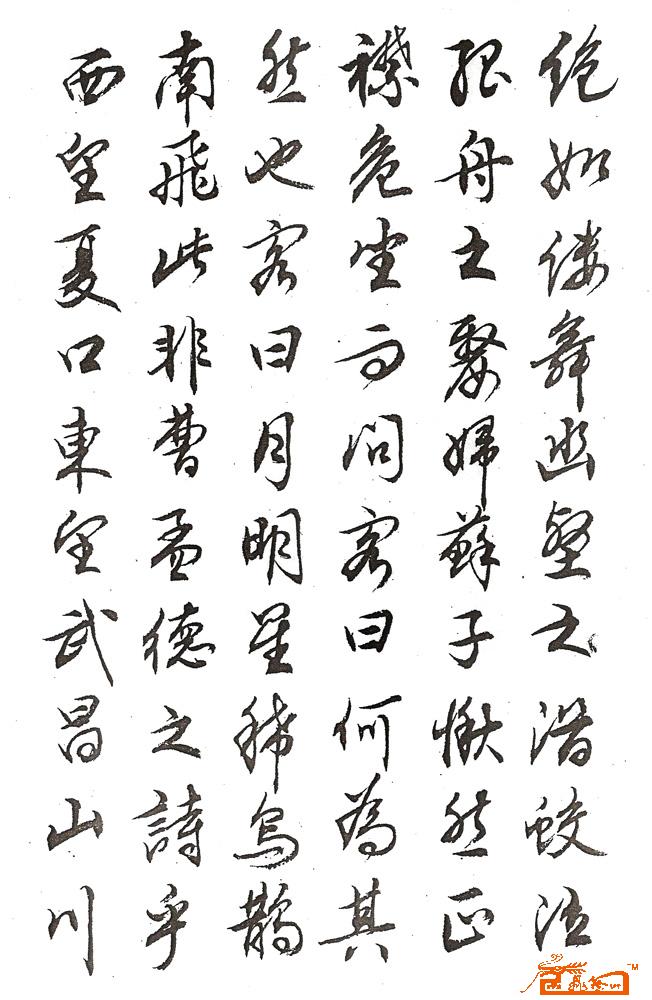 絶如縷舞幽壑之潛蛟泣
孤舟之嫠婦蘇子愀然正
襟危坐而問客曰何為其
然也客曰月明星稀烏鵲
南飛此非曹孟德之詩乎
西望夏口東望武昌山川
TM